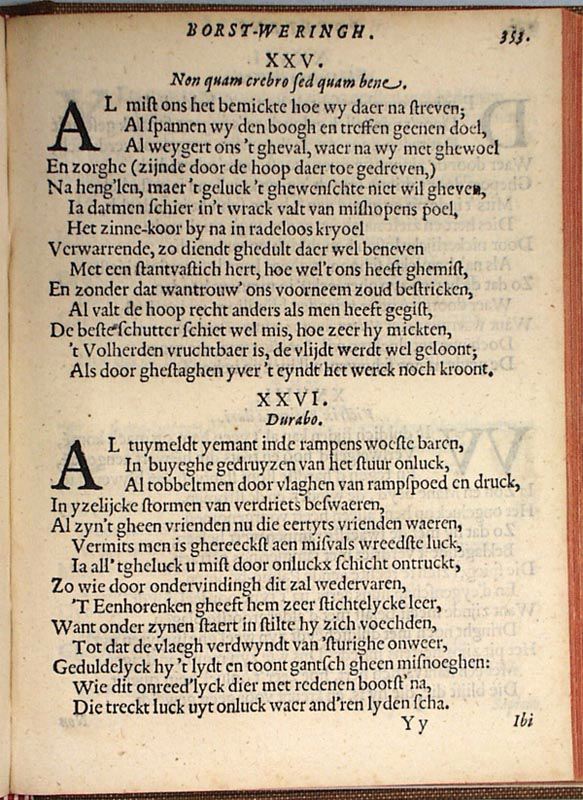 BORST-WERINGH. 353.
XXV.
Non quam crebro sed quam bene.
AL mist ons het bemickte hoe wy daer na streven;
Al spannen wy den boogh en treffen geenen doel,
Al weygert ons 't gheval, waer na wy met ghewoel
En zorghe (zijnde door de hoop daer toe gedreven,)
Na heng'len, maer 't geluck 't ghewenschte niet wil gheven,
Ia datmen schier in't wrack valt van mishopens poel,
Het zinne-koor by na in radeloos kryoel
Verwarrende, zo diendt ghedult daer wel beneven
Met een stantvastich hert, hoe wel't ons heeft ghemist,
En zonder dat wantrouw' ons voorneem zoud bestricken,
Al valt de hoop recht anders als men heeft gegist,
De beste schutter schiet wel mis, hoe zeer hy mickten,
't Volherden vruchtbaer is, de vlijdt werdt wel geloont;
Als door ghestaghen yver 't eyndt het werck noch kroont.
XXVI.
Durabo.
AL tuymeldt yemant inde rampens woeste baren,
In buyeghe gedruyzen van het stuur onluck,
Al tobbeltmen door vlaghen van rampspoed en druck,
In yzelijcke stormen van verdriets beswaeren,
Al zyn't gheen vrienden nu die eertyts vrienden waeren,
Vermits men is ghereeckst aen misvals wreedste luck,
Ia all' tgheluck u mist door onluckx schicht ontruckt,
Zo wie door ondervindingh dit zal wedervaren,
'T Eenhorenken gheeft hem zeer stichtelycke leer,
Want onder zynen staert in stilte hy zich voechden,
Tot dat de vlaegh verdwyndt van 'sturighe onweer,
Geduldelyck hy 't lydt en toont gantsch gheen misnoeghen:
Wie dit onreed'lyck dier met redenen bootst' na,
Die treckt luck uyt onluck waer and'ren lyden scha.
Y y Ibi